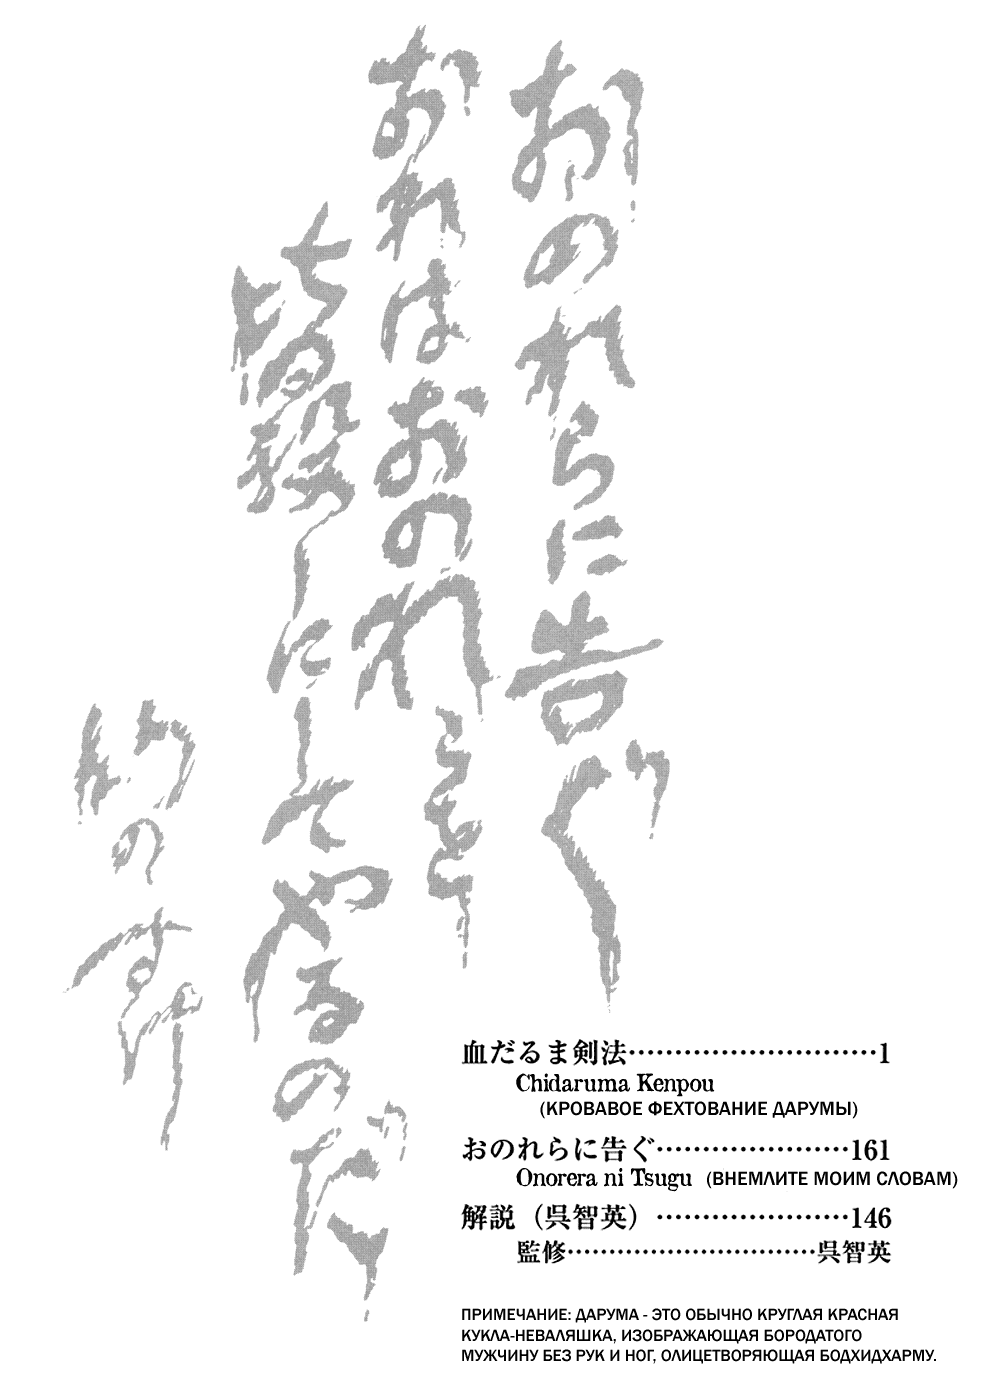 おのれらに告ぐ
おれはおのれらを
皆殺しにしてやるのだ
血だるま剣法…………………………1
Chidaruma Kenpou
(КРОВАВОЕ ФЕХТОВАНИЕ ДАРУМЫ)
おのれらに告ぐ…………………161
Onorera ni Tsugu (ВНЕМЛИТЕ МОИМ СЛОВАМ)
解説（呉智英）…………………146
監修…………………………呉智英
ПРИМЕЧАНИЕ: ДАРУМА - ЭТО ОБЫЧНО КРУГЛАЯ КРАСНАЯ
КУКЛА-НЕВАЛЯШКА, ИЗОБРАЖАЮЩАЯ БОРОДАТОГО
МУЖЧИНУ БЕЗ РУК И НОГ, ОЛИЦЕТВОРЯЮЩАЯ БОДХИДХАРМУ.